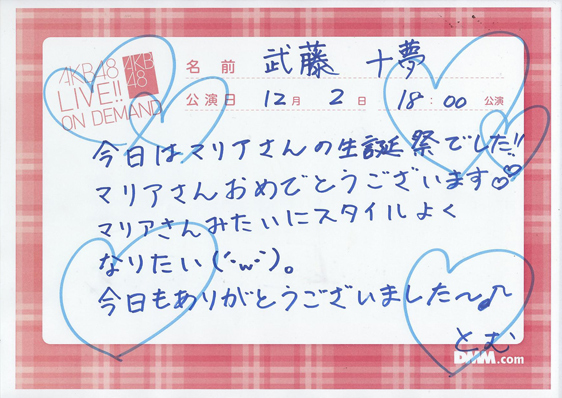 AKB48
LIVE!!
ON DEMAND
AKB
48
名前 武藤 十夢
公演日 12月 2日 18:00 公演
今日はマリアさんの生誕祭でした!!
マリアさんおめでとうございます♡♡
マリアさんみたいにスタイルよく
なりたい(´・ω・`)。
今日もありがとうございました〜♪
とむ
DMM.com